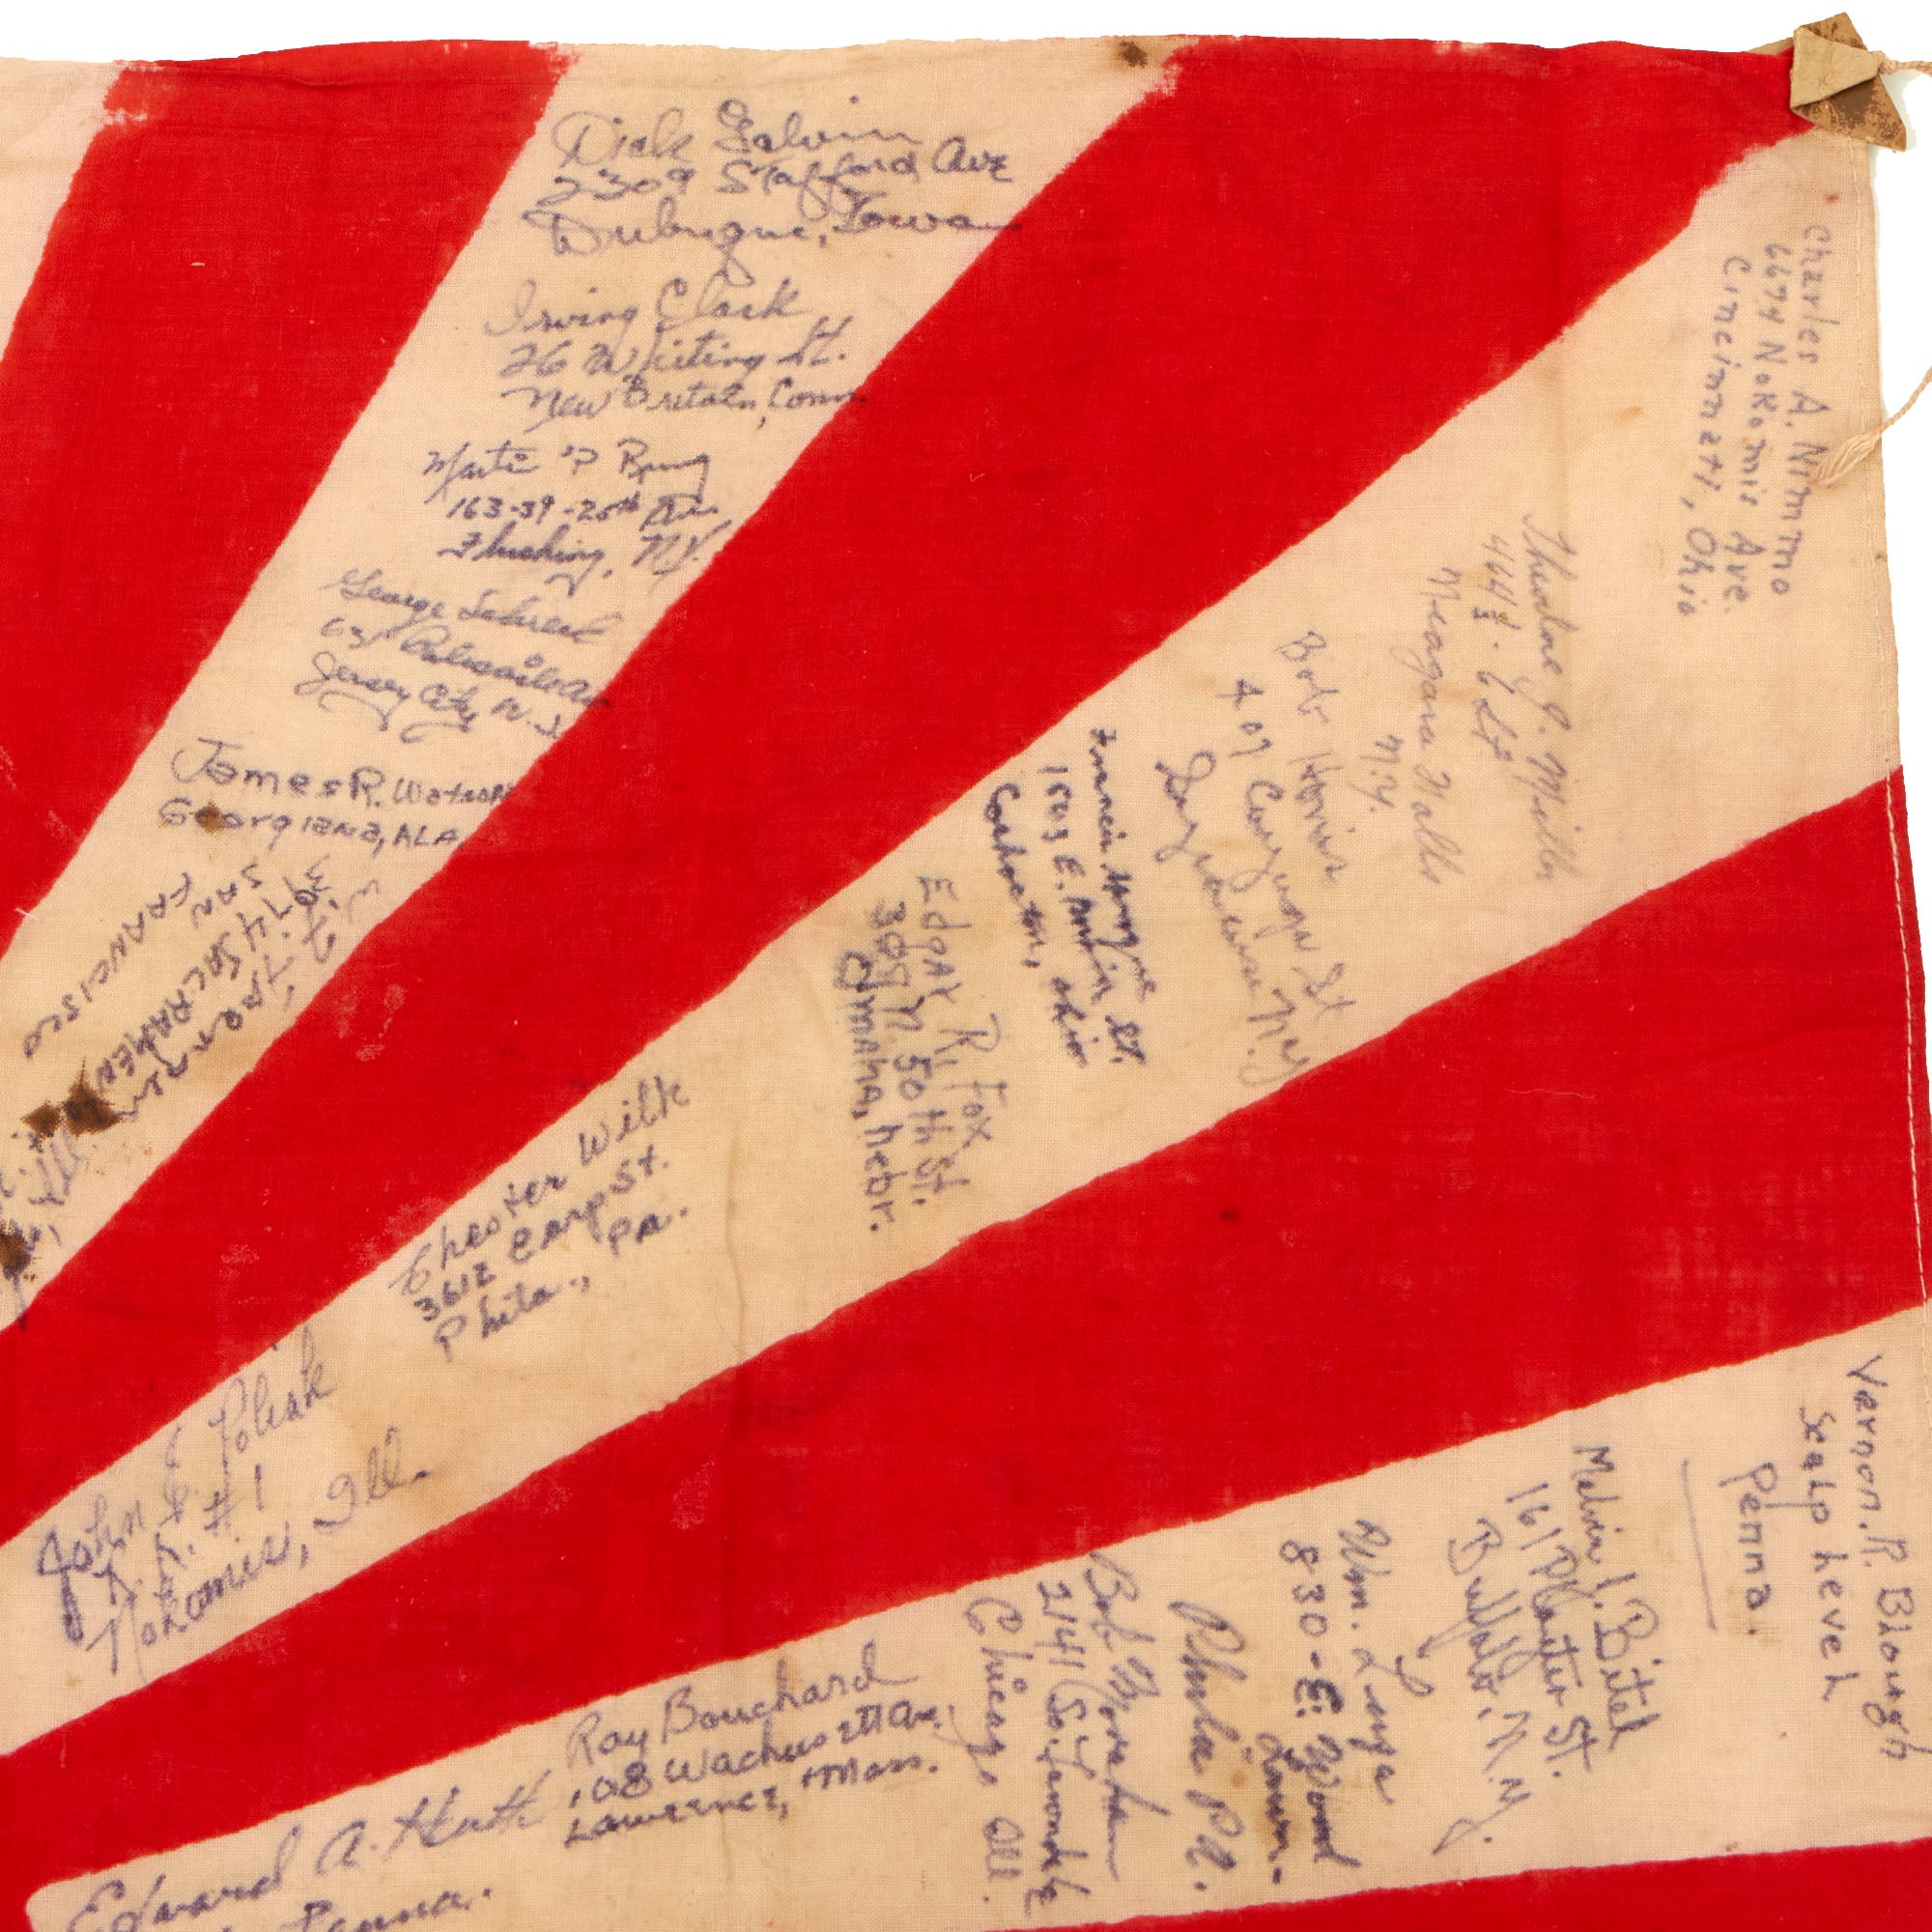 Dick Galvin
2309 Stafford Ave
Dubuque, Iowa
Irving Clark
26 Whiting St.
New Britain, Conn.
163-39-20th Ave.
Flushing, N.Y.
George
Jersey City N.J.
James R. Watson
Georgiana, ALA.
3974 SACRAMEN
SAN
FRANCISCO
Ill.
Charles A. Nimmo
6674 Nokomis Ave.
Cincinnati, Ohio
Theodore J. Mills
444½ - 6 St
Niagara Falls
N.Y.
Bob Harris
409 Cayuga St
Syracuse N.Y.
Francis
1503 E. Main St.
Coshocton, Ohio
Edgar R. Fox
3051 N 50th St.
Omaha, Nebr.
Chester Wilk
3612 Earp St.
Phila., Pa.
John E. Polisk
R.R. #1
Nokomis, Ill.
Vernon. R. Blough
Scalp Level
Penna.
Melvin J. Bitel
161 Playter St.
Buffalo, N.Y.
Wm. Loya
830-E. Wood
Phila Pa.
Bob
2141 So.
Chicago Ill.
Ray Bouchard
108 Wachusett Ave.
Lawrence, Mass.
Edward A. Heath
Penna.